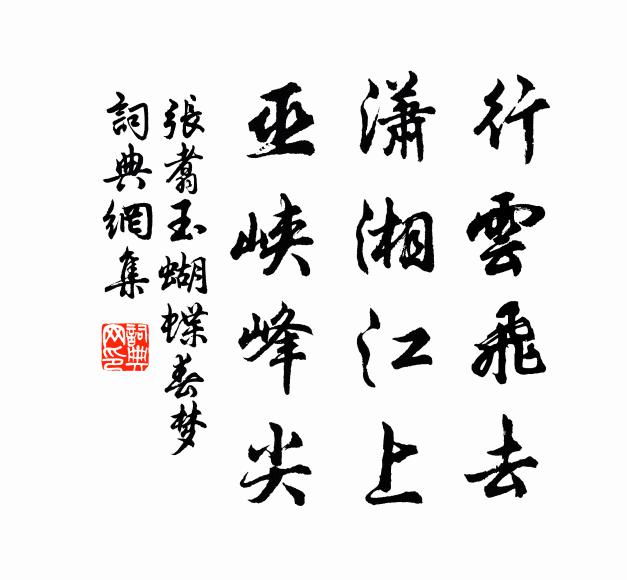 行雲飛去
瀟湘江上
巫峽峰尖
張翥玉蝴蝶春梦
詞典網集
詞典网印